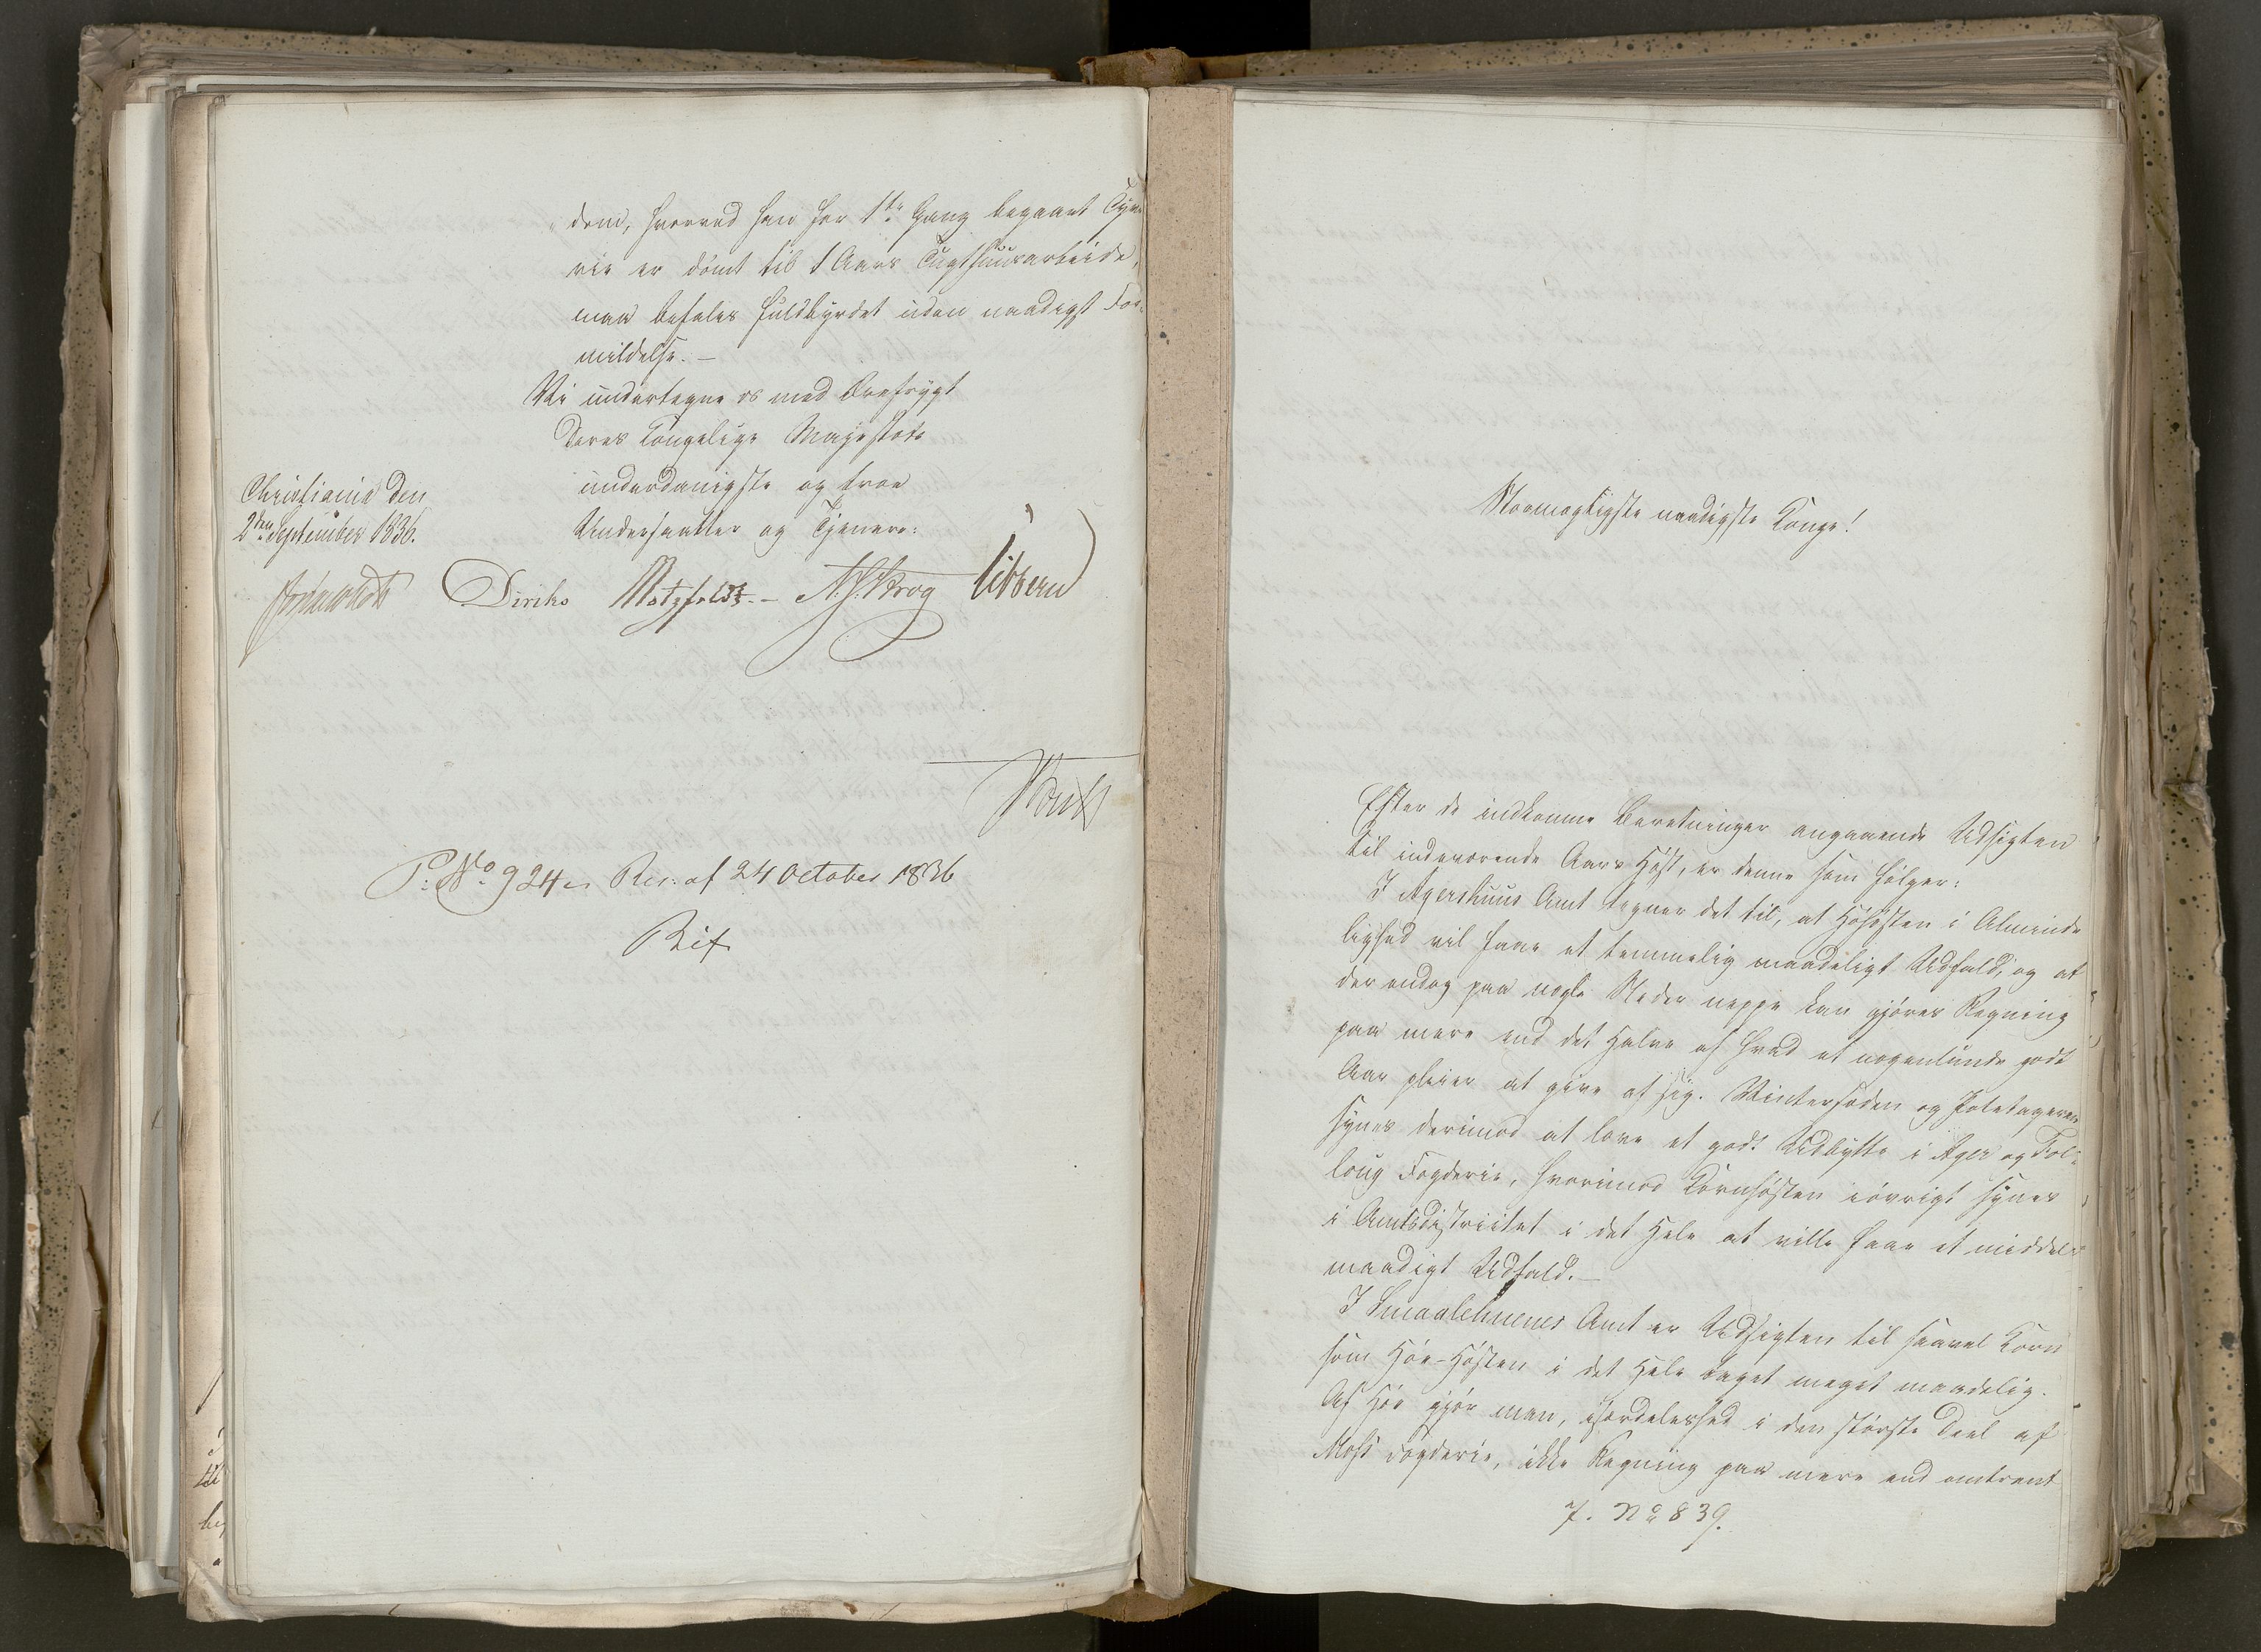 dom, hvorved han for 1ste Gang begaaet Tyve-
rie er dömt til 1 Aars Tugthuusarbeide,
maa befales fuldbyrdet uden naadigst For-
mildelse. —
Vi undertegne os med Ærefrygt
Deres Kongelige Majestæts
underdanigste og troe
Undersaatter og Tjenere:
Christiania den
2den September 1836.
Diriks Motzfeldt. – N. J. Krog Sibbern
P: No 924 Res: af 24 October 1836
Stormægtigste naadigste Konge!
Efter de indkomne Beretninger angaaende Udsigten
til indeværende Aars Höst, er denne som fölger:
I Agershuus Amt tegner det til, at Höhösten i Alminde
lighed vil faae et temmelig maadeligt Udfald, og at
der endog paa nogle Steder neppe kan gjöres Regning
paa mere end det Halve af hvad et nogenlunde godt
Aar pleier at give af sig. Vintersæden og Potetageren
synes derimod at love et godt Udbytte i Ager og Fol-
loug Fogderie, hvorimod Kornhösten iövrigt synes
i Amtsdistriktet i det Hele at ville faae et middel-
maadigt Udfald. —
I Smaalehnenes Amt er Udsigten til saavel Korn
som Höe-Hösten i det Hele taget meget maadelig.
Af Höe gjör man, især­deleshed i den störste Deel af
Moss Fogderie, ikke Regning paa mere end omtrent
7. No 839.